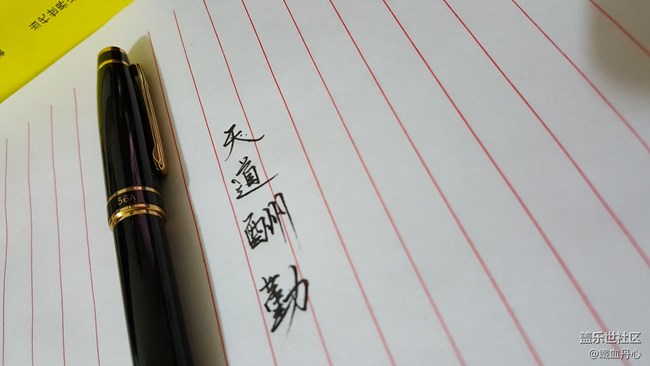 天道酬勤
盖乐世社区
@鐵血丹心